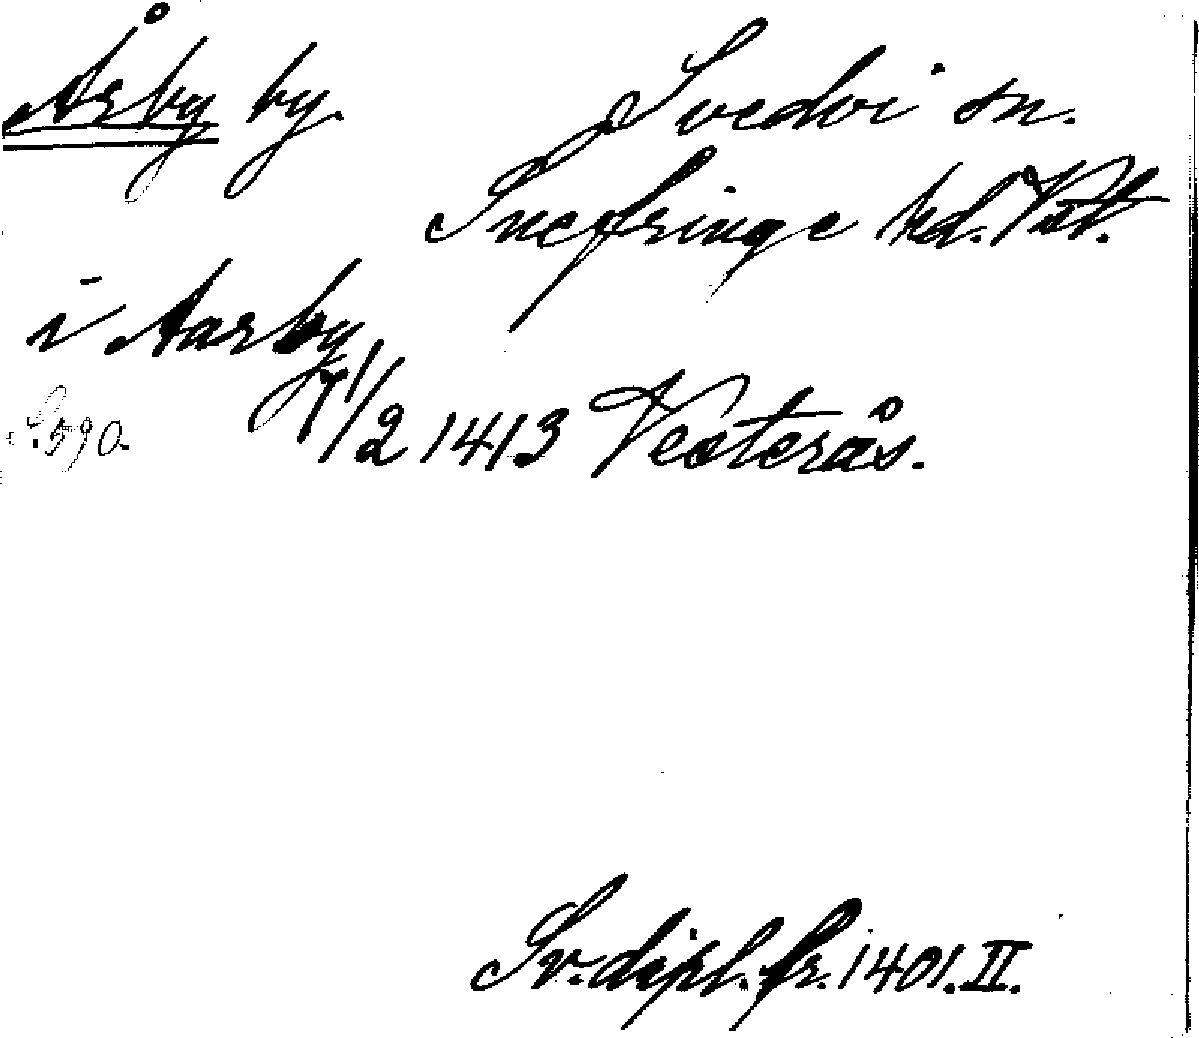 Åsby by. Svedvi sn.
Snefringe hd. Vstl.
i Aasby
S. 590. 7 1/2 1413 Vesterås.
Sv. dipl. fr. 1401. II.